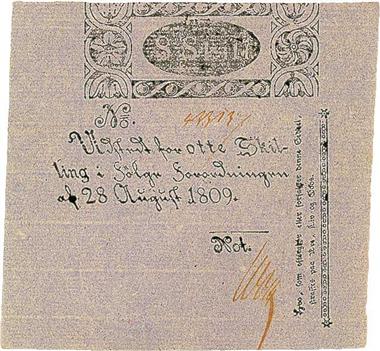 8 SKIL
No.
Udstedt for otte Skil-
ling i Følge Forordningen
af 28 August 1809.
Not.
Hvo, som eftergiør eller forfalsker denne Seddel,
straffes paa Ære, Liv og Gods.